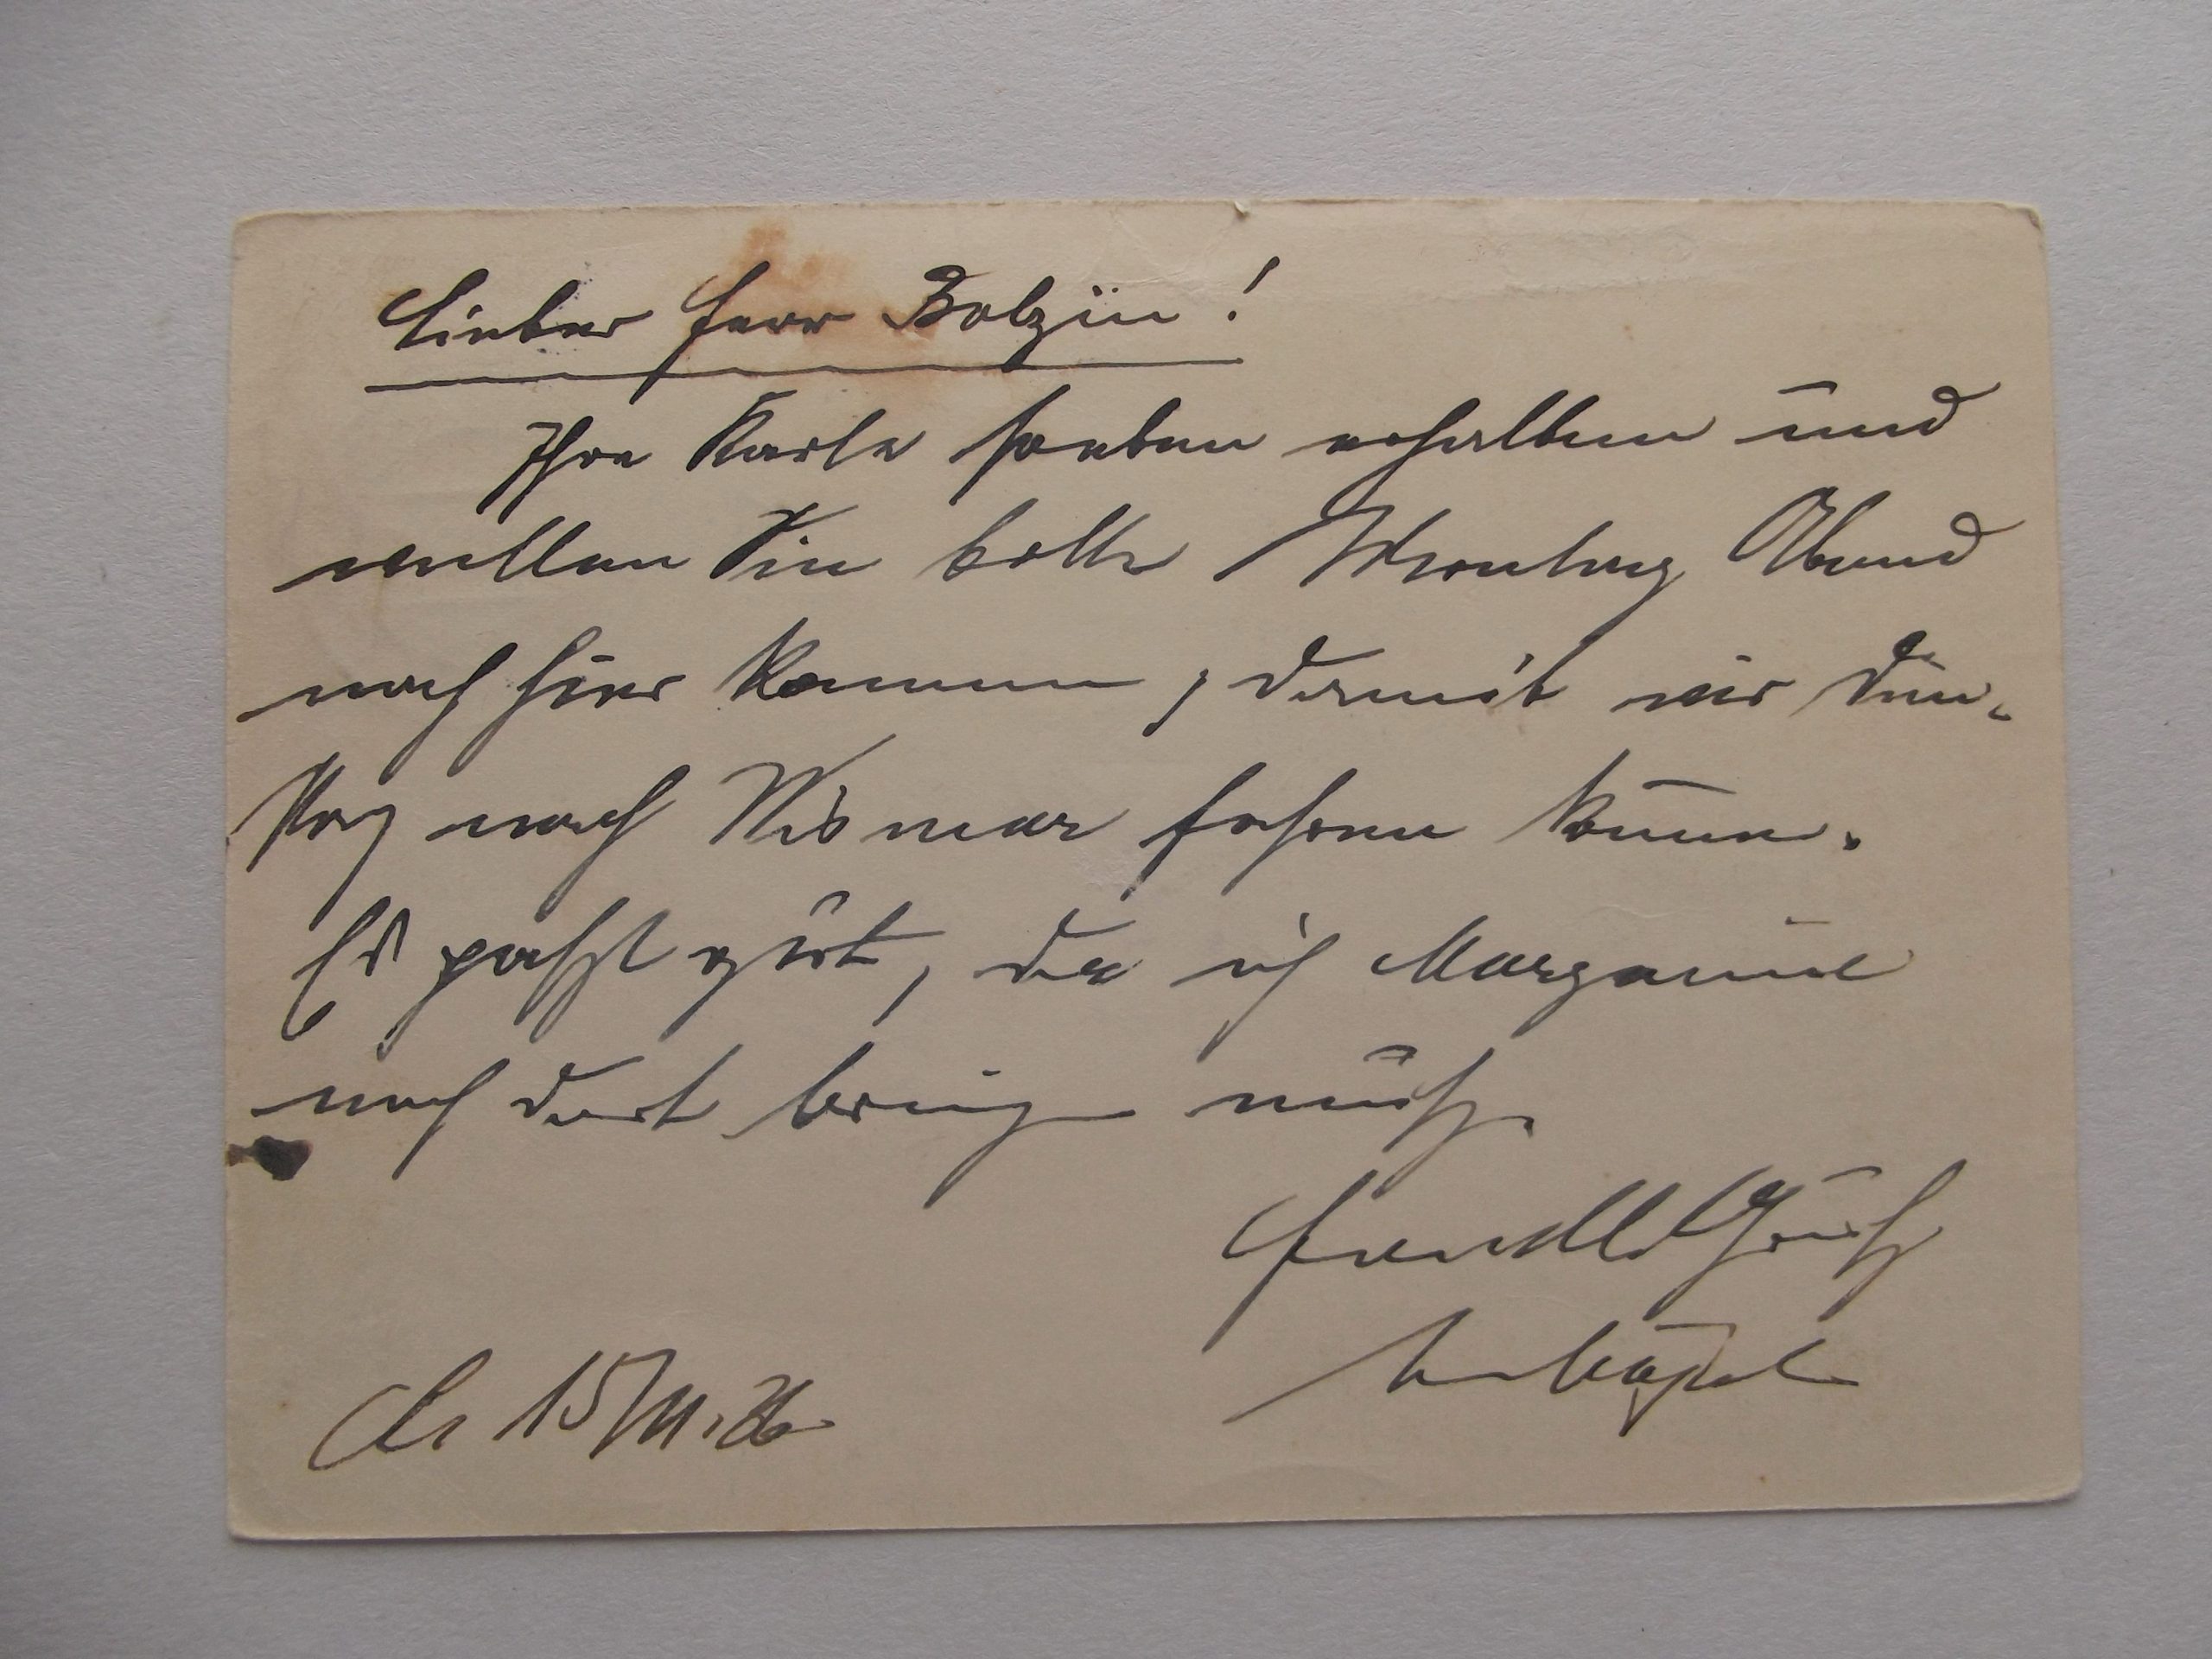 Lieber Herr Bolzin!
Ihre Karte soeben erhalten und
wollen Sie bitte Montag Abend
nach hier kommen, damit wir Diens-
tag nach Wismar fahren können.
Es paßt gut, da ich
nach dort bringen muß.
Freundl. Gruß
15/11.36